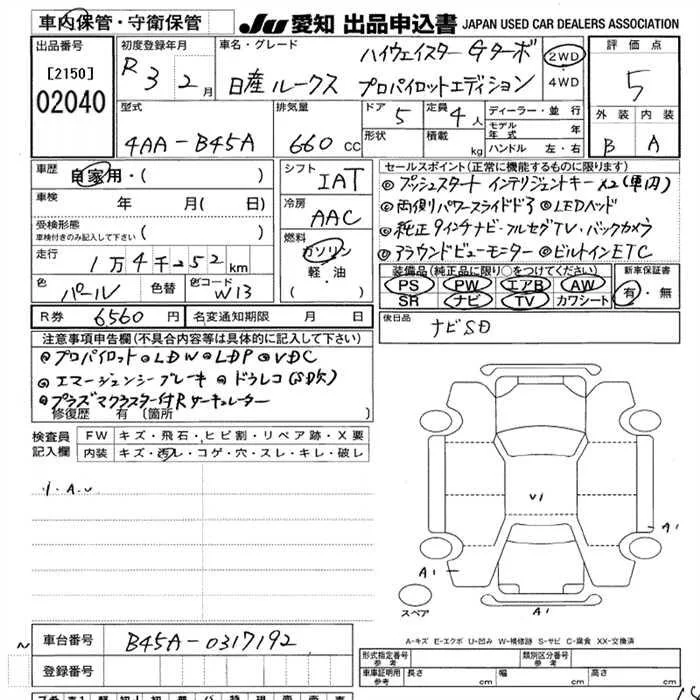 車内保管・守衛保管
JU 愛知 出品申込書 JAPAN USED CAR DEALERS ASSOCIATION
出品番号
[2150]
02040
初度登録年月
R 3 2月
車名・グレード
ハイウェイスター Gターボ
日産 ルークス プロパイロットエディション
2WD
・
4WD
評価点
5
外装 内装
B A
型式
4AA-B45A
排気量
660 cc
ドア
5
定員
4人
形状
積載
kg
ディーラー・並行
モデル年式 年
ハンドル 左・右
車歴
自家用・( )
車検 年 月( 日)
受検形態
車検付きのみ記入して下さい ( )
走行
1万4千252km
色
パール
色替
色コード
W13
シフト
IAT
冷房
AAC
燃料
ガソリン
・
軽・油
・( )
R券 6560円
名変通知期限 月 日
セールスポイント(正常に機能するものに限ります)
◎プッシュスタート インテリジェントキー×2(車内)
◎両側パワースライドドア ◎LEDヘッド
◎純正9インチナビ・フルセグTV・バックカメラ
◎アラウンドビューモニター ◎ビルトインETC
装備品(純正品に限り○をつけてください)
PS PW エアB AW
SR ナビ TV カワシート
新車保証書
有・無
後日品
ナビSD
注意事項申告欄(不具合内容等は具体的に記入して下さい)
◎プロパイロット◎LDW◎LDP◎VDC
◎エマージェンシーブレーキ ◎ドラレコ(SD欠)
◎プラズマクラスター付Rサーキュレーター
修復歴 有 〔箇所 〕
検査員
記入欄
FW キズ・飛石・ヒビ割・リペア跡・X要
内装 キズ・汚レ・コゲ・穴・スレ・キレ・破レ
V1
A1
A1
A1
スペア
A-キズ E-エクボ U-凹み W-補修跡 S-サビ C-腐食 XX-交換済
車台番号 B45A-0317192
登録番号
形式指定番号
参考
類別区分番号
参考
車庫証明用
参考
長さ cm 幅 cm 高さ cm